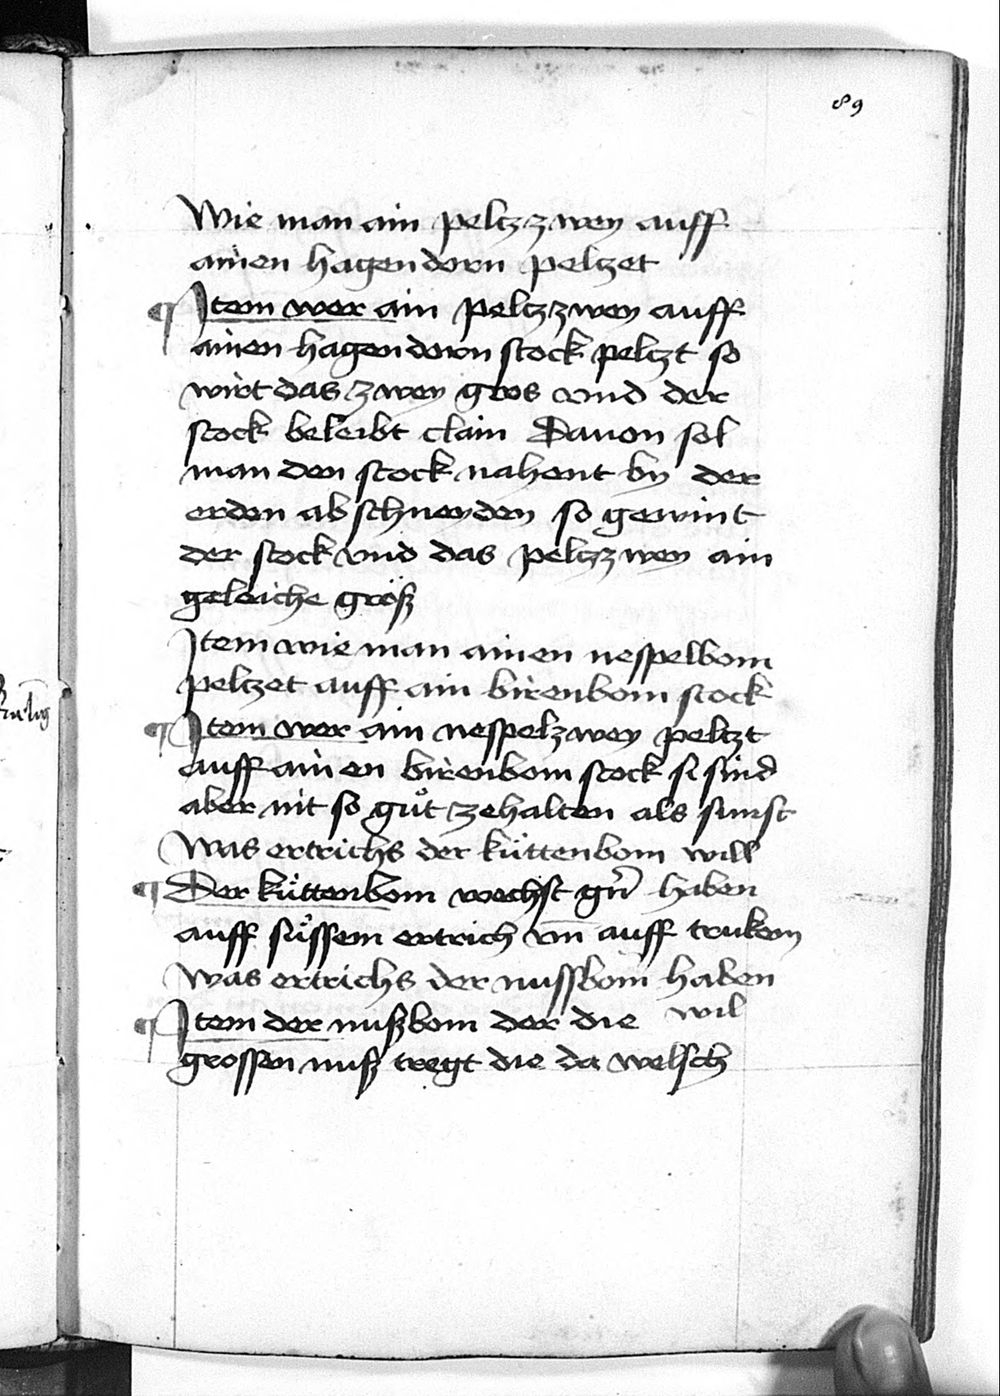 89
Wie man ain peltzzwey auff
ainen hagendorn peltzet
¶ Item wer ain peltzzwey auff
ainen hagendorn stock peltzt so
wirt das zwey gros vnd der
stock beleibt clain Dauon sol
man den stock nahent by der
erden ab schneyden so gewint
der stock vnd das peltzzwey ain
geleiche größ
Item wie man ainen nespelbom
peltzet auff ain birenbom stock
¶ Item wer ain nespelzwey peltzt
auff ainen birenbom stock si sind
aber nit so guͦt zehalten als sunst
Was ertrichs der küttenbom will
¶ Der küttenbom wechst gern̄ haben
auff süssem ertrich vn̄ auff trukem
Was ertrichs der nussbom haben
wil
¶ Item der nußbom der die
grossen nuß tregt die da welsch